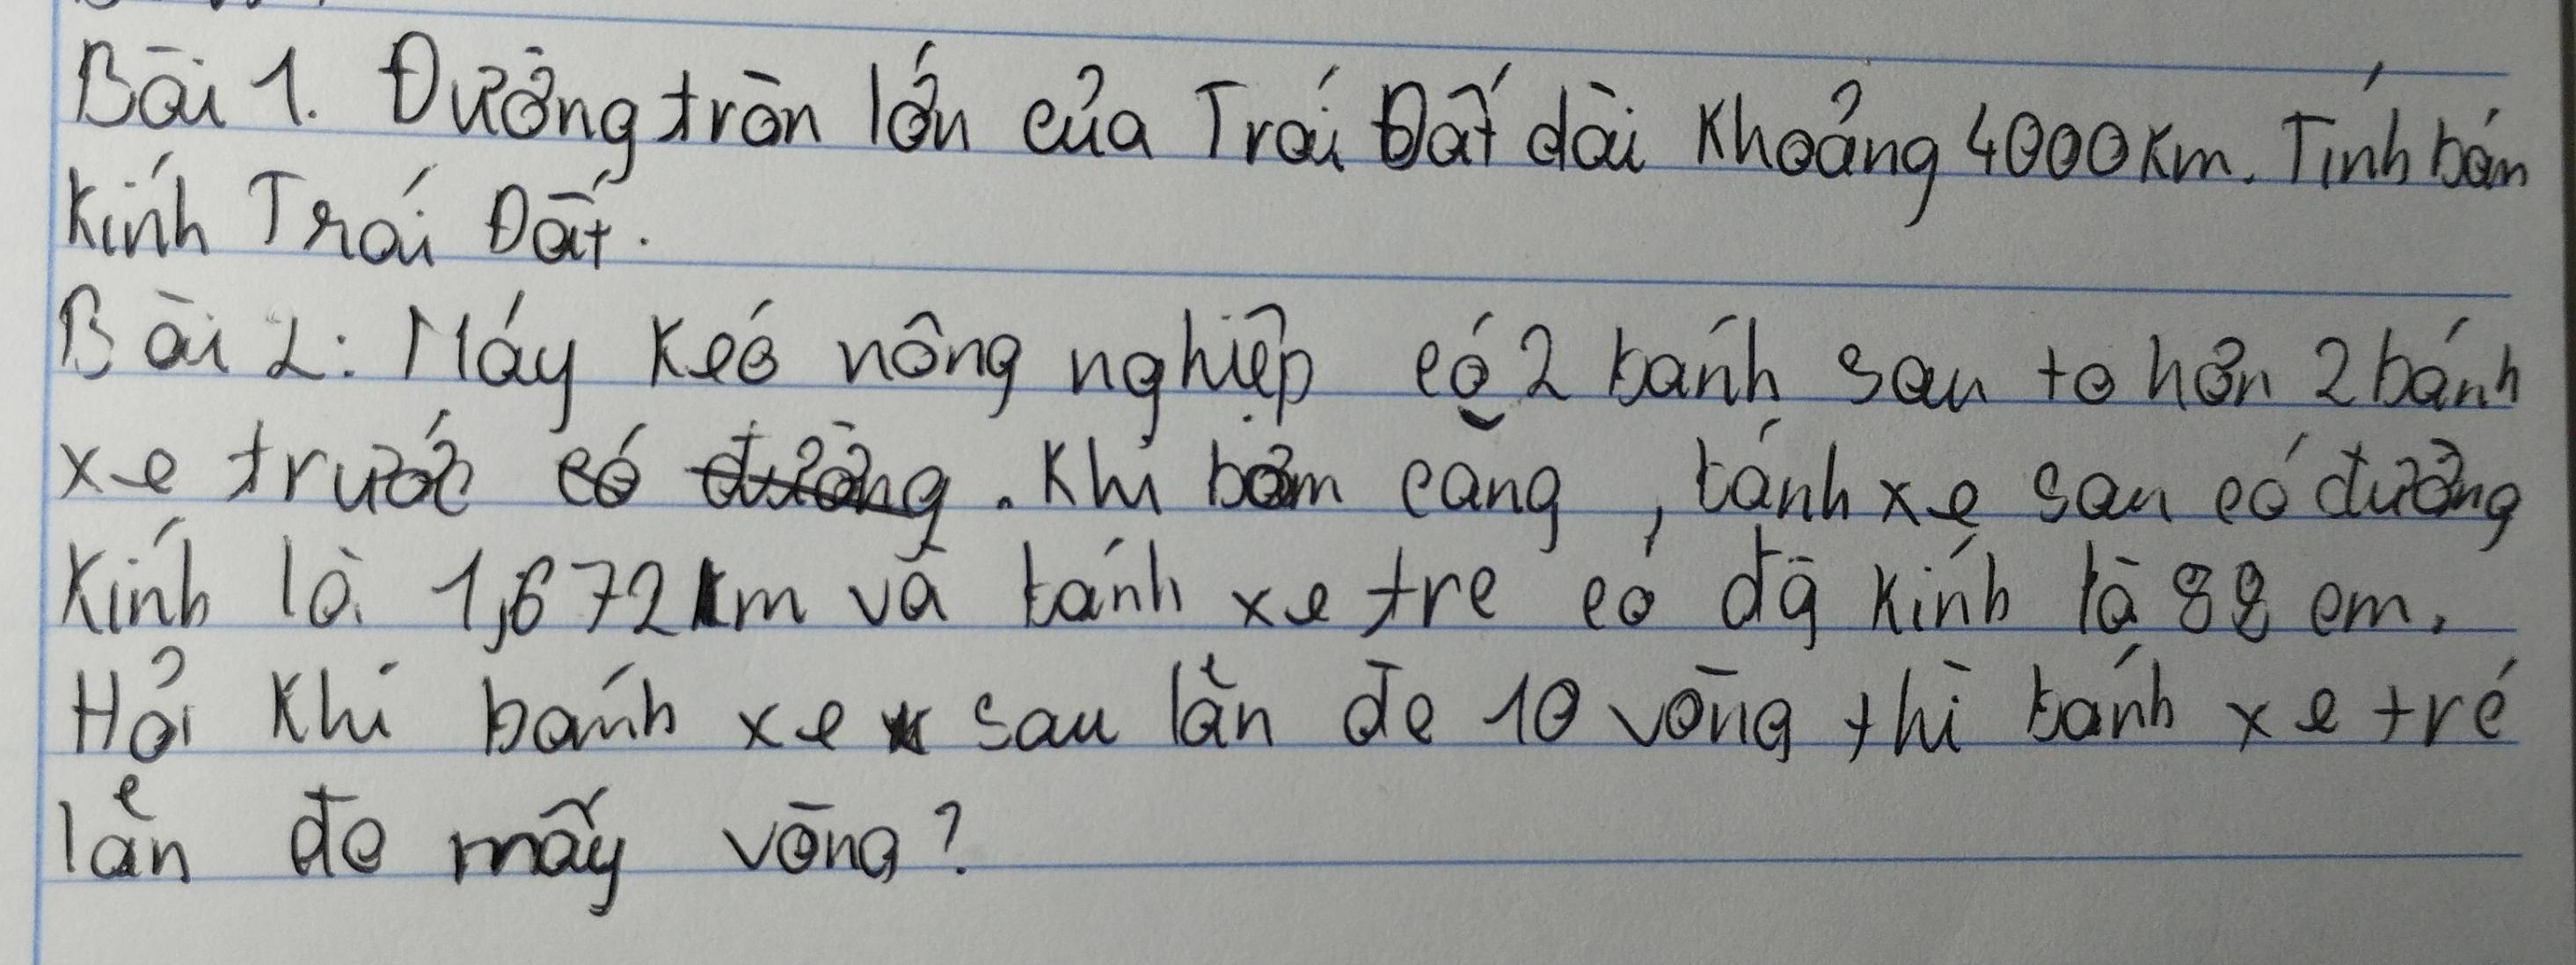 Bài 1. Đường tròn lớn của Trái Đất dài khoảng 4000km. Tính bán
kính Trái Đất.
Bài 2: Máy kéo nông nghiệp có 2 bánh sau to hơn 2 bánh
xe trước có đường. Khi bơm căng, bánh xe sau có đường
kính là 1,672m và bánh xe trc có đg kính là 88 cm.
Hỏi khi bánh xe sau lăn đc 10 vòng thì bánh xe trc
lăn đc mấy vòng?